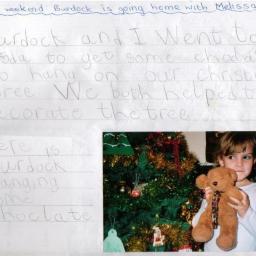 weekend Burdock is going home with Melissa
urdock and I went to
sda to get some chocola
o hang on our christm
ree. We both helped to
ecorate the tree.
ere is
urdock
anging
ome
hoclate